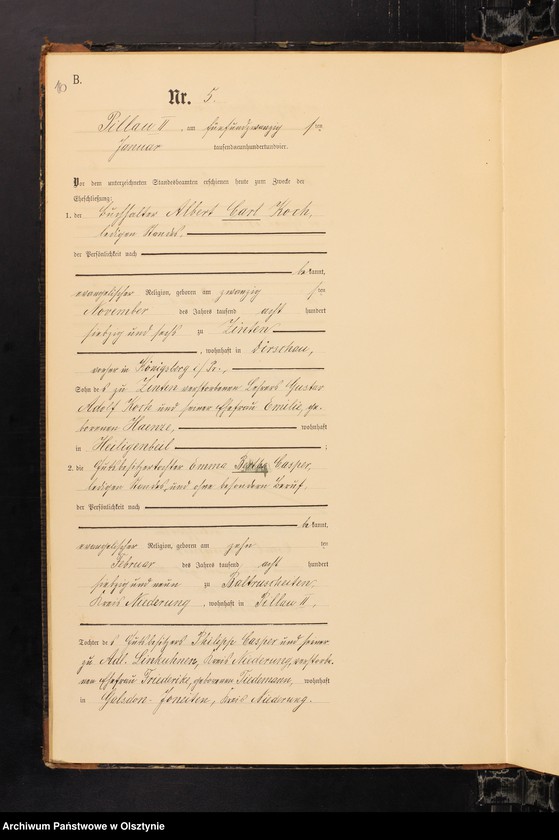 B.
Nr. 5.
Pillau II, am fünfundzwanzig ten
Januar tausendneunhundertundvier.
Vor dem unterzeichneten Standesbeamten erschienen heute zum Zwecke der
Eheschließung:
1. der Buchhalter Albert Carl Koch,
ledigen Standes,
der Persönlichkeit nach
be kannt,
evangelischer Religion, geboren am zwanzig ten
November des Jahres tausend acht hundert
siebzig und sechs zu Zinten
, wohnhaft in Dirschau,
vorher in Königsberg i/Pr.,
Sohn des zu Zinten verstorbenen Lehrers Gustav
Adolf Koch und seiner Ehefrau Emilie, ge-
borenen Haenze, wohnhaft
in Heiligenbeil ;
2. die Gutsbesitzertochter Emma Casper,
ledigen Standes, und ohne besondern Beruf.
der Persönlichkeit nach
be kannt,
evangelischer Religion, geboren am zehn ten
Februar des Jahres tausend acht hundert
siebzig und neun zu Baltruscheiten,
Kreis Niederung, wohnhaft in Pillau II,
Tochter des Gutsbesitzers Philipp Casper und seiner
zu Adl. Linkuhnen, Kreis Niederung, verstorbe-
nen Ehefrau Friederike, geborenen Tiedemann, wohnhaft
in Joneiten, Kreis Niederung.
Archiwum Państwowe w Olsztynie